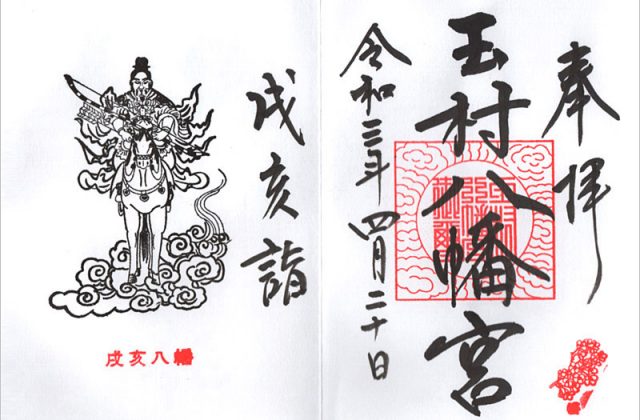 奉拝
玉村八幡宮
令和三年四月二十日
戌亥詣
戌亥八幡